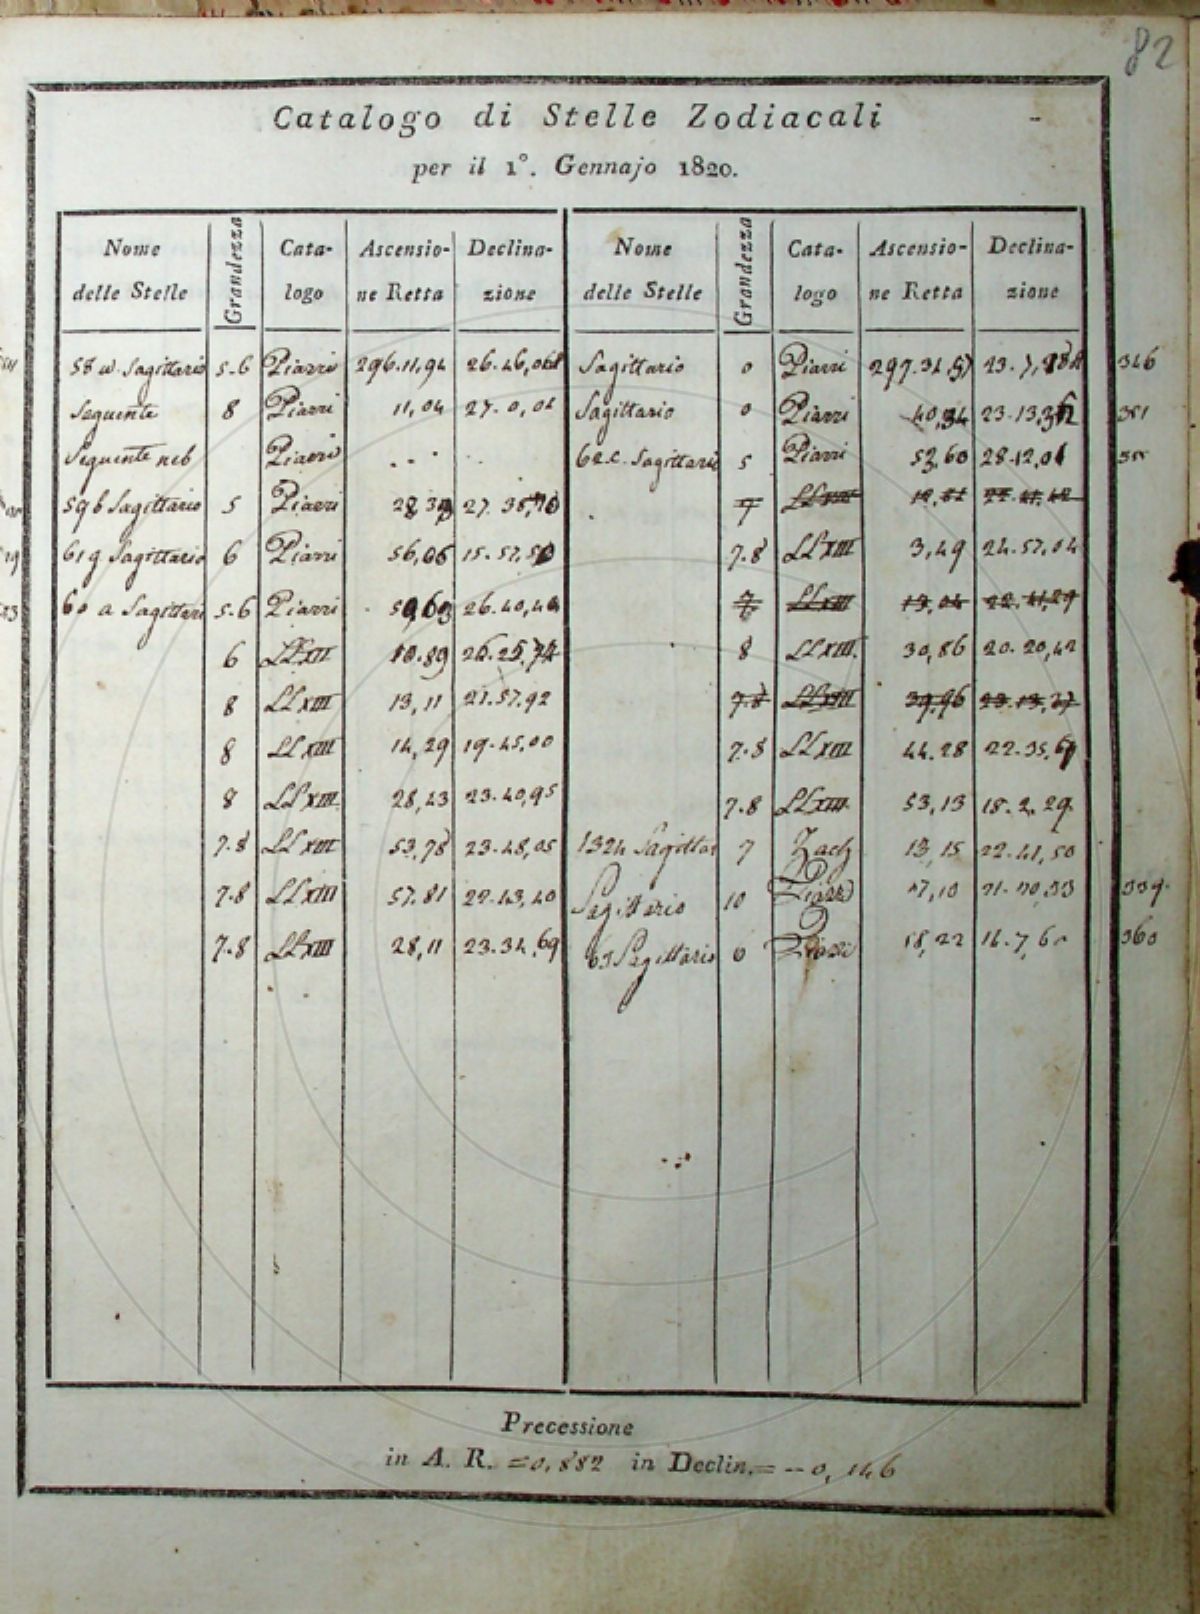 82
Catalogo di Stelle Zodiacali
per il 1°. Gennajo 1820.
Nome delle Stelle Grandezza Cata- logo Ascensio- ne Retta Declina- zione Nome delle Stelle Grandezza Cata- logo Ascensio- ne Retta Declina- zione
58 w Sagittario 5-6 Piazzi 296.11,94 Sagittario Piazzi 346
Seguente 8 Piazzi 11,04 27.0,04 Sagittario Piazzi 351
Seguente neb Piazzi 62.c. Sagittario 5 Piazzi 52,60
59 b Sagittario 5 Piazzi 7 LLXIII
61 g Sagittario 6 Piazzi 7.8 LLXIII 3,49 24.57,04
60 a Sagittari 5-6 Piazzi LLXIII
6 LLXIII 8 LLXIII 30,86 20.20,42
8 LLXIII 13,11 21.57,92 7.8 LLXIII 39,96
8 LLXIII 14,29 19.45,00 7.8 LLXIII 44.28
8 LLXIII 28,43 23.40,95 7.8 LLXIII 53,13 18.2,29
7.8 LLXIII 53,78 23.48,05 1324 Sagittar 7 Zach 13,15 22.41,50
7.8 LLXIII 57.81 22.43,40 Sagittario 10 Piazzi
7.8 LLXIII 28,11 23.34,69 63 Sagittario 6 Piazzi 58,22 360
Precessione
in A. R. =0,882 in Declin.= --0,146